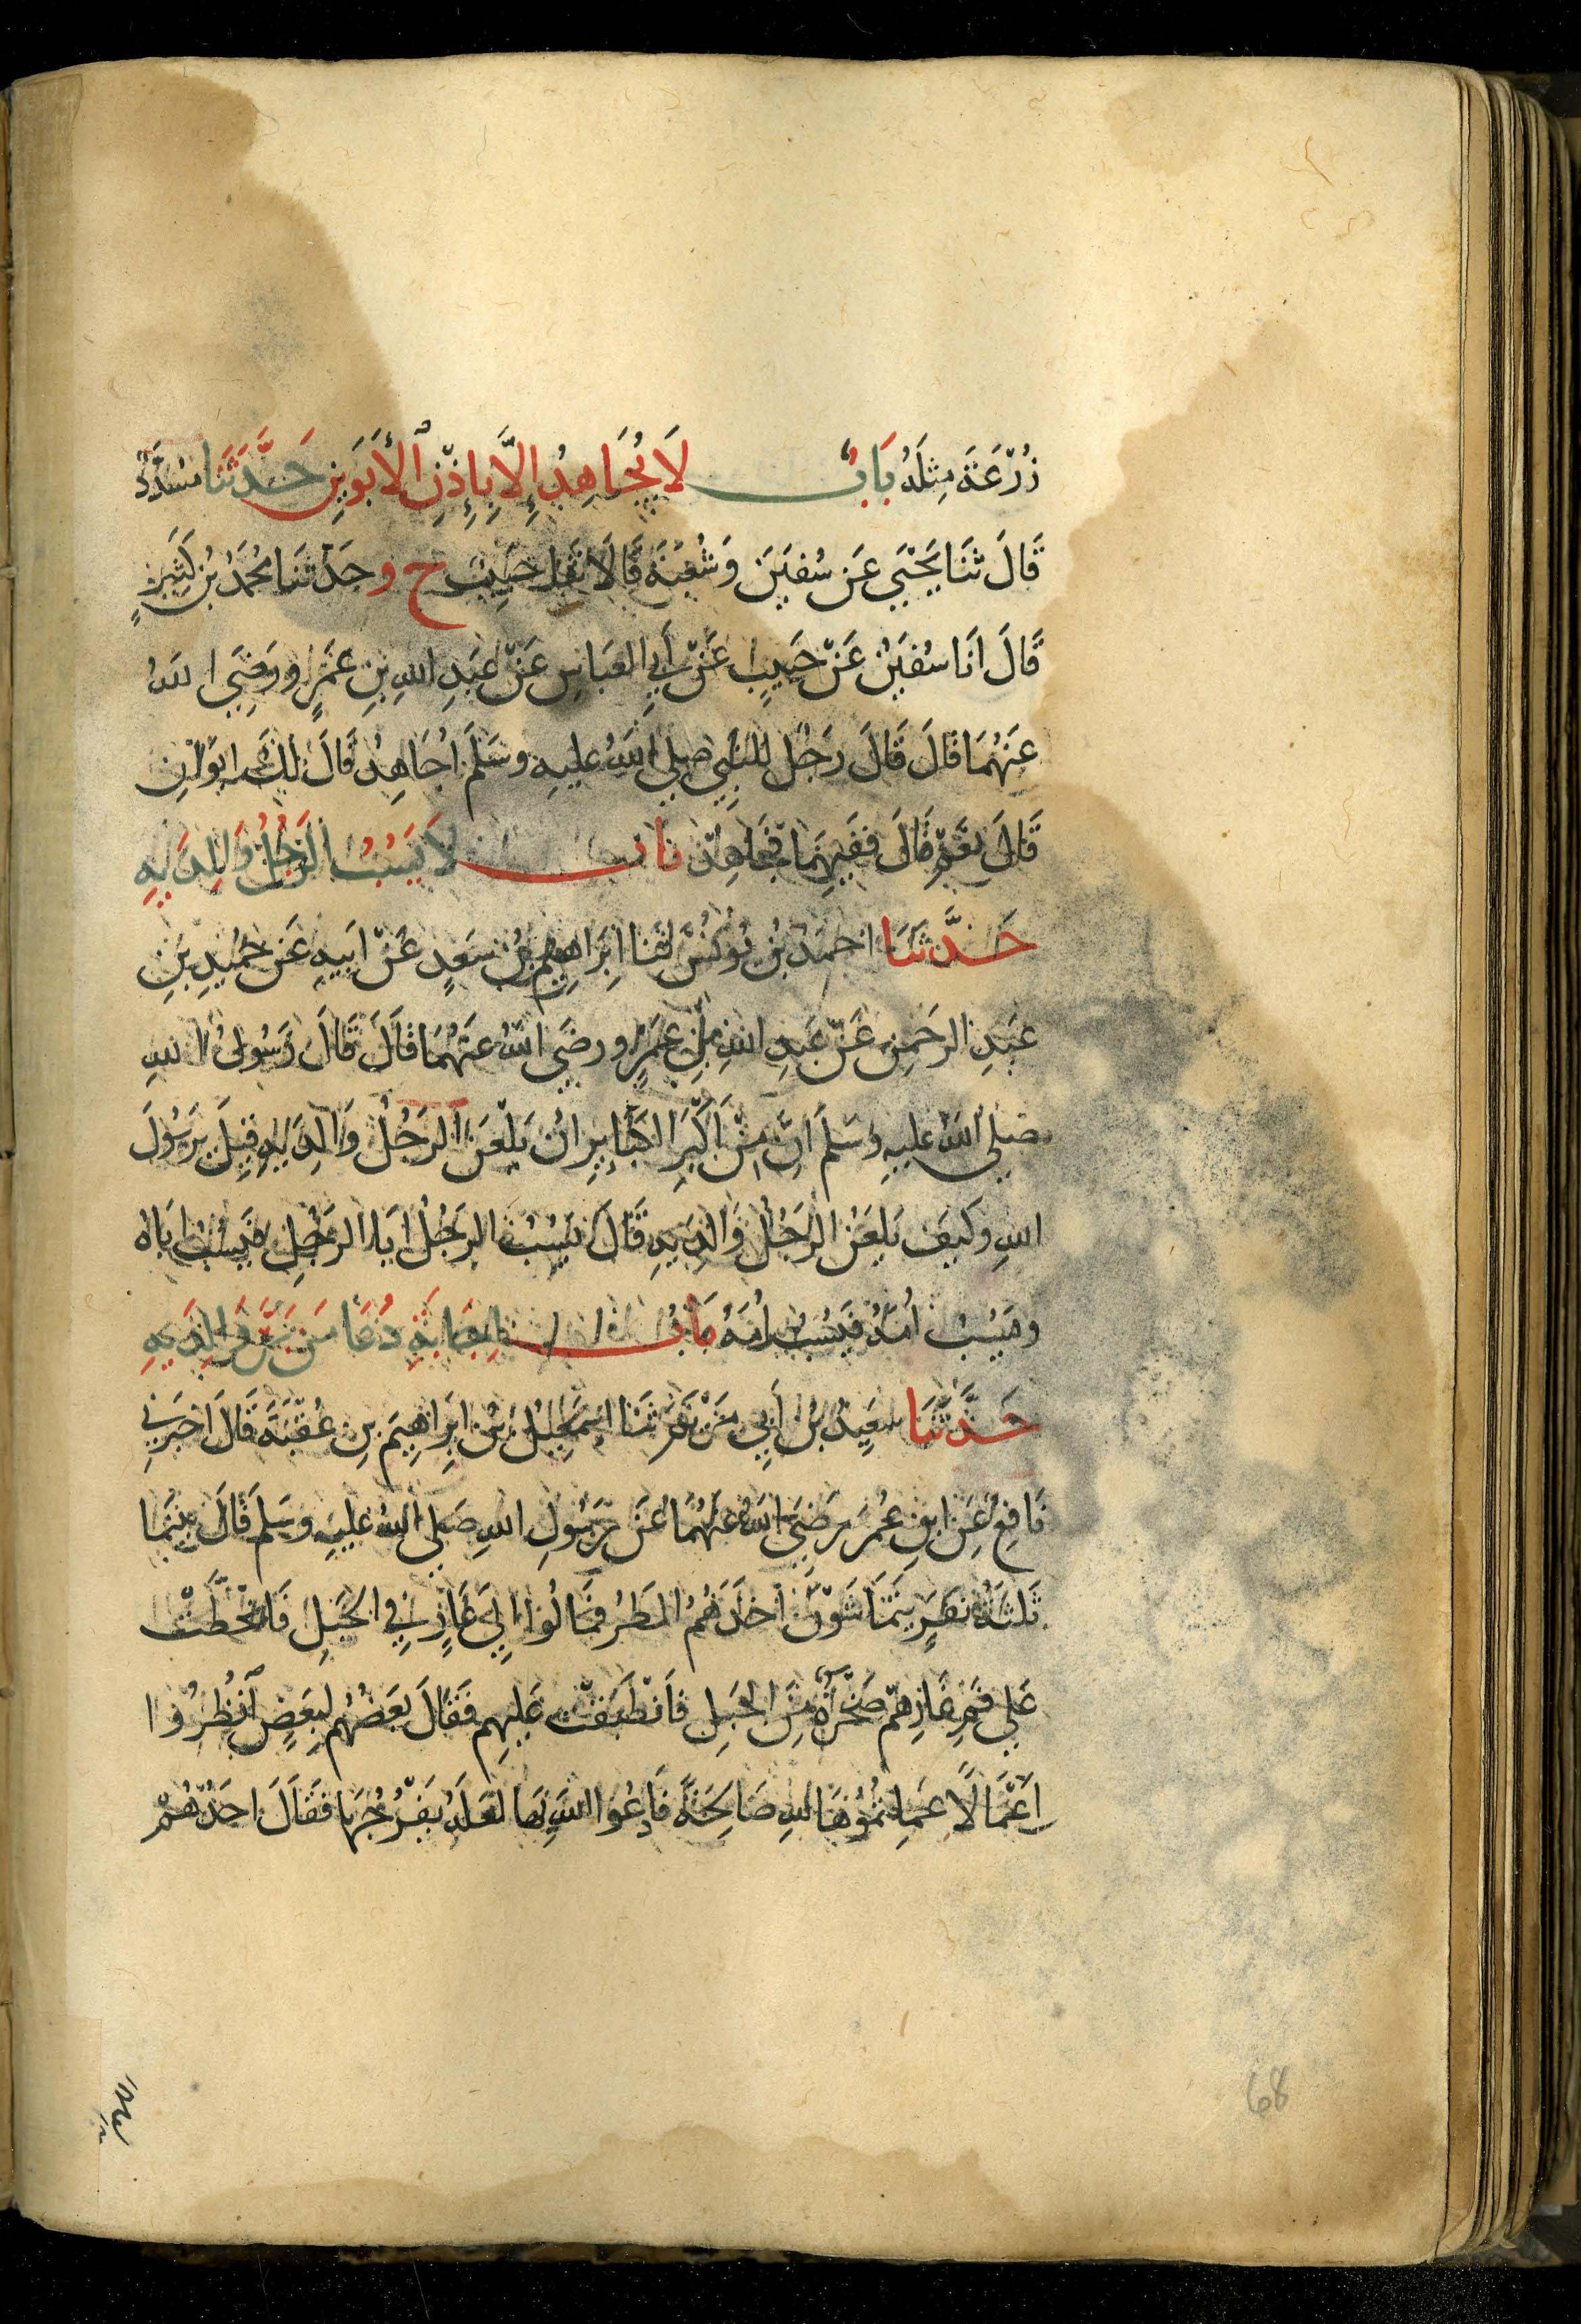 زُرْعَةَ مِثْلَهُ بَابٌ لَا يُجَاهِدُ إِلَّا بِإِذْنِ ٱلْأَبَوَيْنِ حَدَّثَنَا مُسَدَّدٌ
قَالَ ثَنَا يَحْيَي عَن سُفْيٰنَ وَشُعْبَةَ قَالَا ثَنَا حَبِيبٌ ح و حَدَّثَنَا مُحَمَّدُ بْنُ كَثِيرٍ
قَالَ اَنَا سُفْيٰنُ عَنْ حَبِيبٍ عَنْ أَبِي العَبَّاسِ عَنْ عَبْدِ اللهِ بْنِ عَمْرٍو رَضِيَ اللهُ
عَنْهُمَا قَالَ قَالَ رَجُلٌ لِلنَّبِيِّ صلي اللهُ عليهِ وسَلَّمَ اُجَاهِدُ قَالَ لَكَ اَبَوَانِ
قَالَ نَعَمْ قَالَ فَفِيهِمَا فَجَاهِدْ بَابٌ لَا يَسُبُّ الرَّجُلُ وَالِدَيْهِ
حَدَّثَنَا احمَدُ بْنُ يُونُسَ ثَنَا اِبْرَاهِيمُ بْنُ سَعْدٍ عَنْ اَبِيهِ عَن حُمَيْدِ بْنِ
عَبْدِ الرَّحمٰنِ عَنْ عَبْدِ اللهِ بْنِ عَمْرٍو رضَي اللهُ عَنْهُمَا قَالَ قَالَ رَسُولُ اللهِ
صلي اللهُ عليهِ وسَلَّمَ اِنَّ مِنْ اَكْبَرِ الكَبَايِرِ اَنْ يَلْعَنَ الرَّجُلُ وَالِدَيْهِ قِيلَ يَرَسُولَ
اللهِ وكَيْفَ يَلعَنُ الرَّجُلُ وَالِدَيْهِ قَالَ يَسُبُّ الرَّجُلُ اَبَا الرَّجُلِ فَيَسُبُّ اَبَاهُ
وَيَسُبُّ اُمَّهُ فَيَسُبُّ اُمَّهُ بَابُ اِجَابَةِ دُعَا مَن بَرَّ وَالِدَيْهِ
حَدَّثَنَا سَعِيدُ بْنُ أَبِي مَرْيَمَ ثَنَا اِسْمٰعِيلُ بْنُ اِبْرَاهِيمَ بْنِ عُقْبَةَ قَالَ اَخبَرَنِي
نَافِعٌ عَنِ ابنِ عُمَرَ رَضِيَ اللهُ عَنْهُمَا عَن رَسُولِ اللهِ صَلي اللهُ عليهِ وسَلمَ قَالَ بَيْنَمَا
ثَلٰثَةُ نَفَرٍ يَتَمَاشَوْنَ اَخَذَهُمُ المَطَرُ فَمَالُوا اِلَي غَارٍ فِي الجَبَلِ فَانْحَطَّتْ
عَلي فَمِ غَارِهِمْ صَخْرَةٌ مِنَ الجَبَلِ فَاَنْطَبَقَتْ عَلَيهِم فَقَالَ بَعْضُهُمْ لِبَعْضٍ ٱنْظُرُوا
اَعْمَالًا عَمِلتُمُوْهَا لِلهِ صَالِحَةً فَادْعُوا اللهَ بِهَا لَعَلَّهُ يَفْرُجُهَا فَقَالَ احَدُهُمْ
68